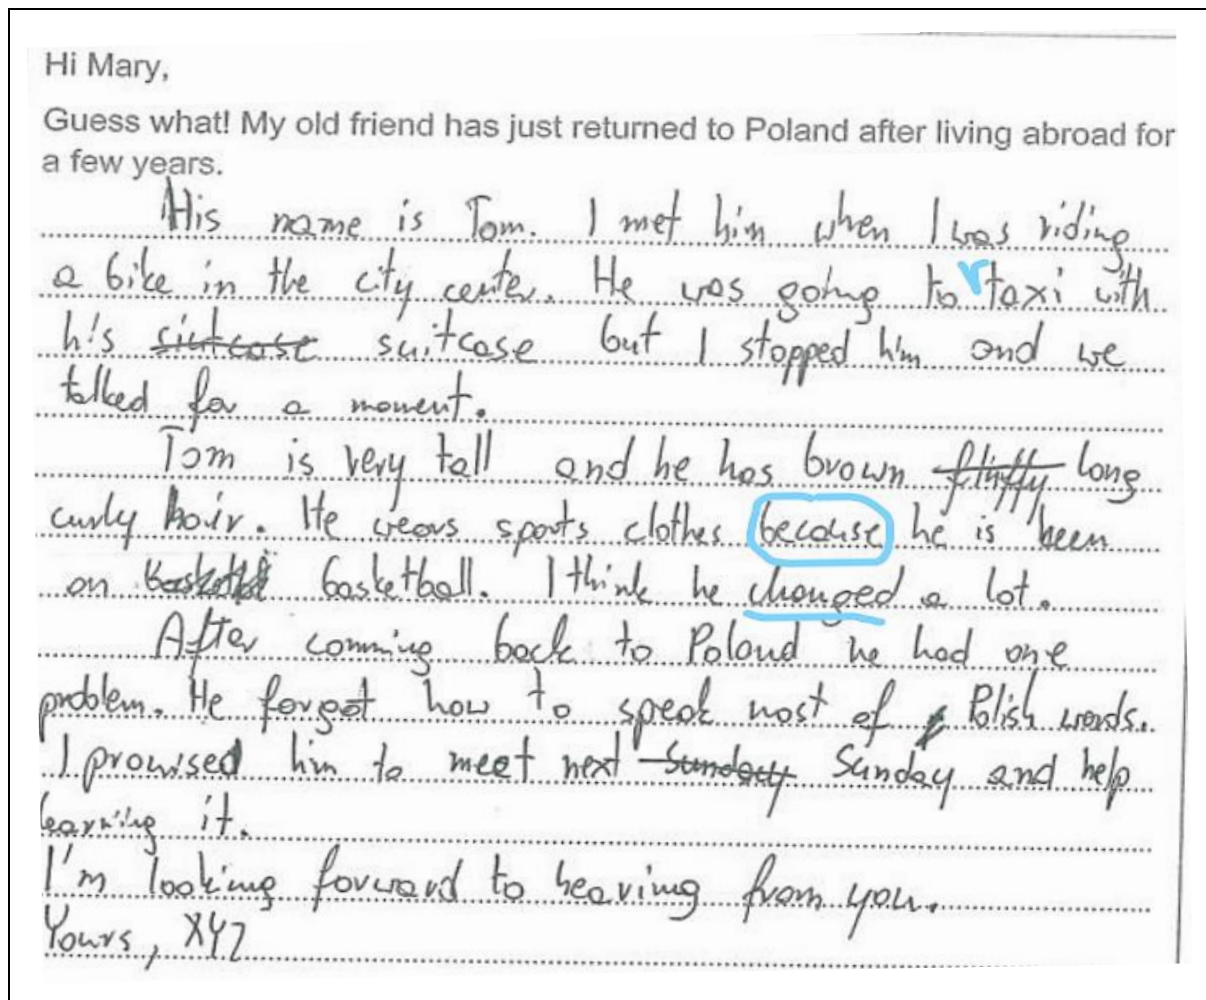 Hi Mary,
Guess what! My old friend has just returned to Poland after living abroad for
a few years.
His name is Tom. I met him when I was riding
a bike in the city center. He was going to taxi with
his siutcase suitcase but I stopped him and we
talked for a moment.
Tom is very tall and he has brown fluffy long
curly hair. He wears sports clothes because he is been
on basketball. I think he changed a lot.
After comming back to Poland he had one
problem. He forgot how to speak most of Polish words.
I promised him to meet next Sunday Sunday and help
learning it.
I'm looking forward to hearing from you.
Yours, XYZ